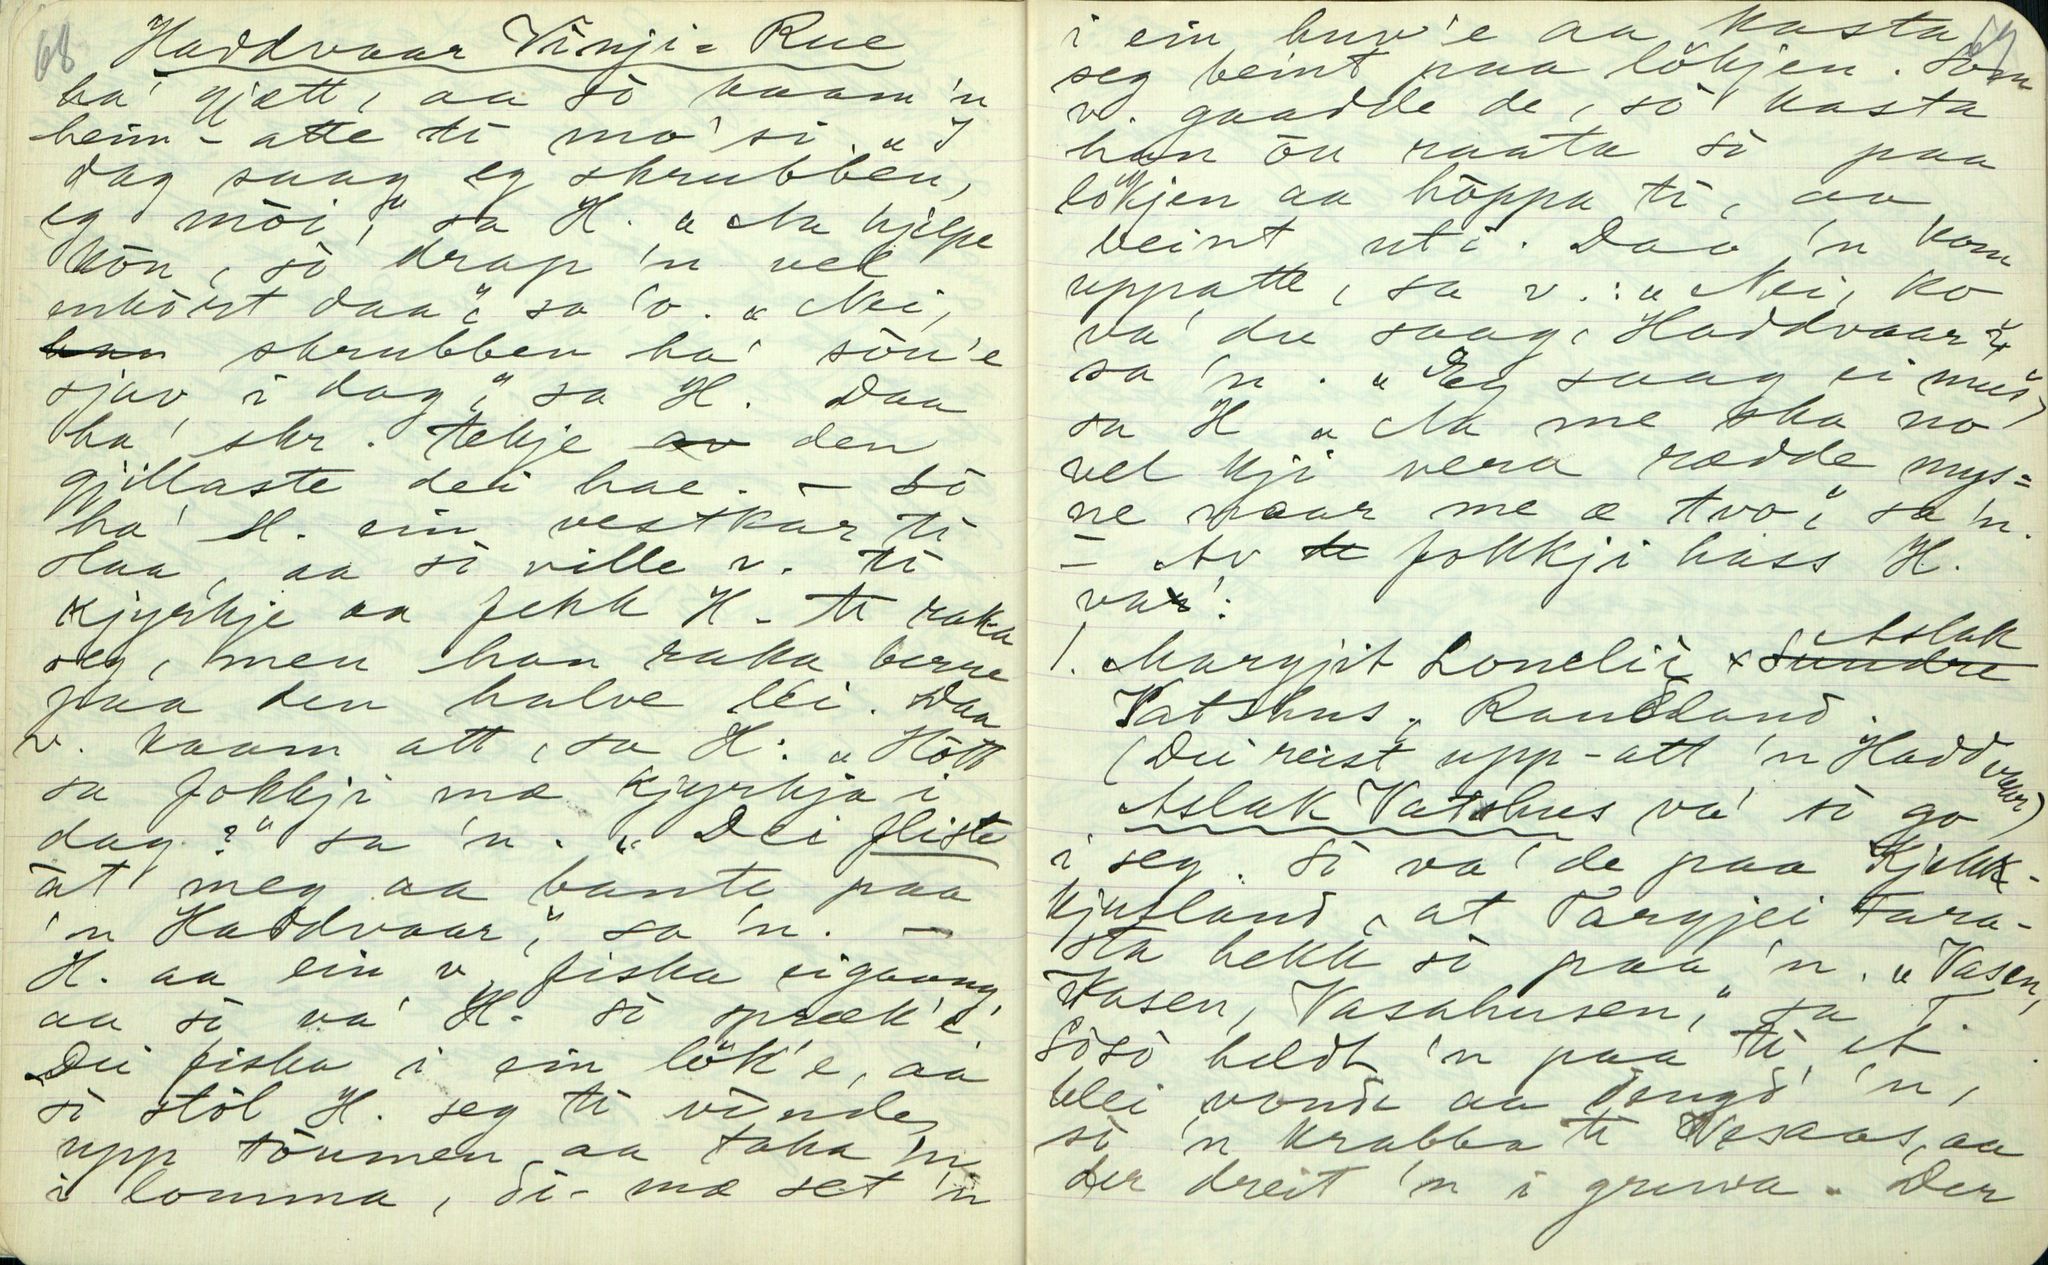 68
Haddvaar Vinji-Rue
ha' gjætt, aa sò kaam 'n
heim-atte ti mo'si. "I
dag saag eg skrubben,
eg mòi," sa H. "Aa hjelpe
kòn, sò drap 'n vel
inkòrt daa", sa 'o. "Nei,
skrubben ha' sòu'e
sjav i dag", sa H. Daa
ha' skr. tekje den
gjillaste dei hae. – So
ha' H. ein vestkar ti
Haa, aa sò ville v. ti
kjyrkje aa fekk H. te raka
seg, men han raka berre
paa den halve lei. Daa
v. kaam att, sa H: "Hòtt
sa fokkji mæ kjyrkja i
dag?" sa 'n. "Dei fliste
åt meg aa banta paa
'n Haddvaar", sa 'n. –
H. aa ein v. fiska eigaang,
aa sò va' H. sò spræk'e.
Dei fiska i ein lòk'e, aa
sò stòl H. seg ti vinde
upp tòumen aa taka 'n
i lomma, sò-mæ set 'n
69
i ein huv'e aa kasta
seg beint paa lòkjen. Som
v. gaadde de, sò kasta
han òu raata sò paa
lòkjen aa hòppa ti, aa
beint uti. Daa 'n kom
uppatte, sa v.: "Nei, ko
va' du saag, Haddvaar?"
sa 'n. "Eg saag ei mus",
sa H. "Aa me ska no
vel kji vera rædde mys-
ne naar me æ tvo", sa 'n.
– Av fokkji hass H.
va':
1. Margjit Lonelii x Aslak
Vatshus, Rauland.
(Dei reist upp-att 'n Haddvaar)
Aslak Vatshus va' sò go
i seg. Sò va' de paa Kjekk-
kjusland, at Targjei Fara-
sta hekk sò paa 'n. "Vasen,
Vasen, Vasahusen," sa T.
Sòsò heldt 'n paa ti A.
blei vonde aa dengd' 'n,
sò 'n krabba ti Vesaas, aa
der dreit 'n i gruva. Der